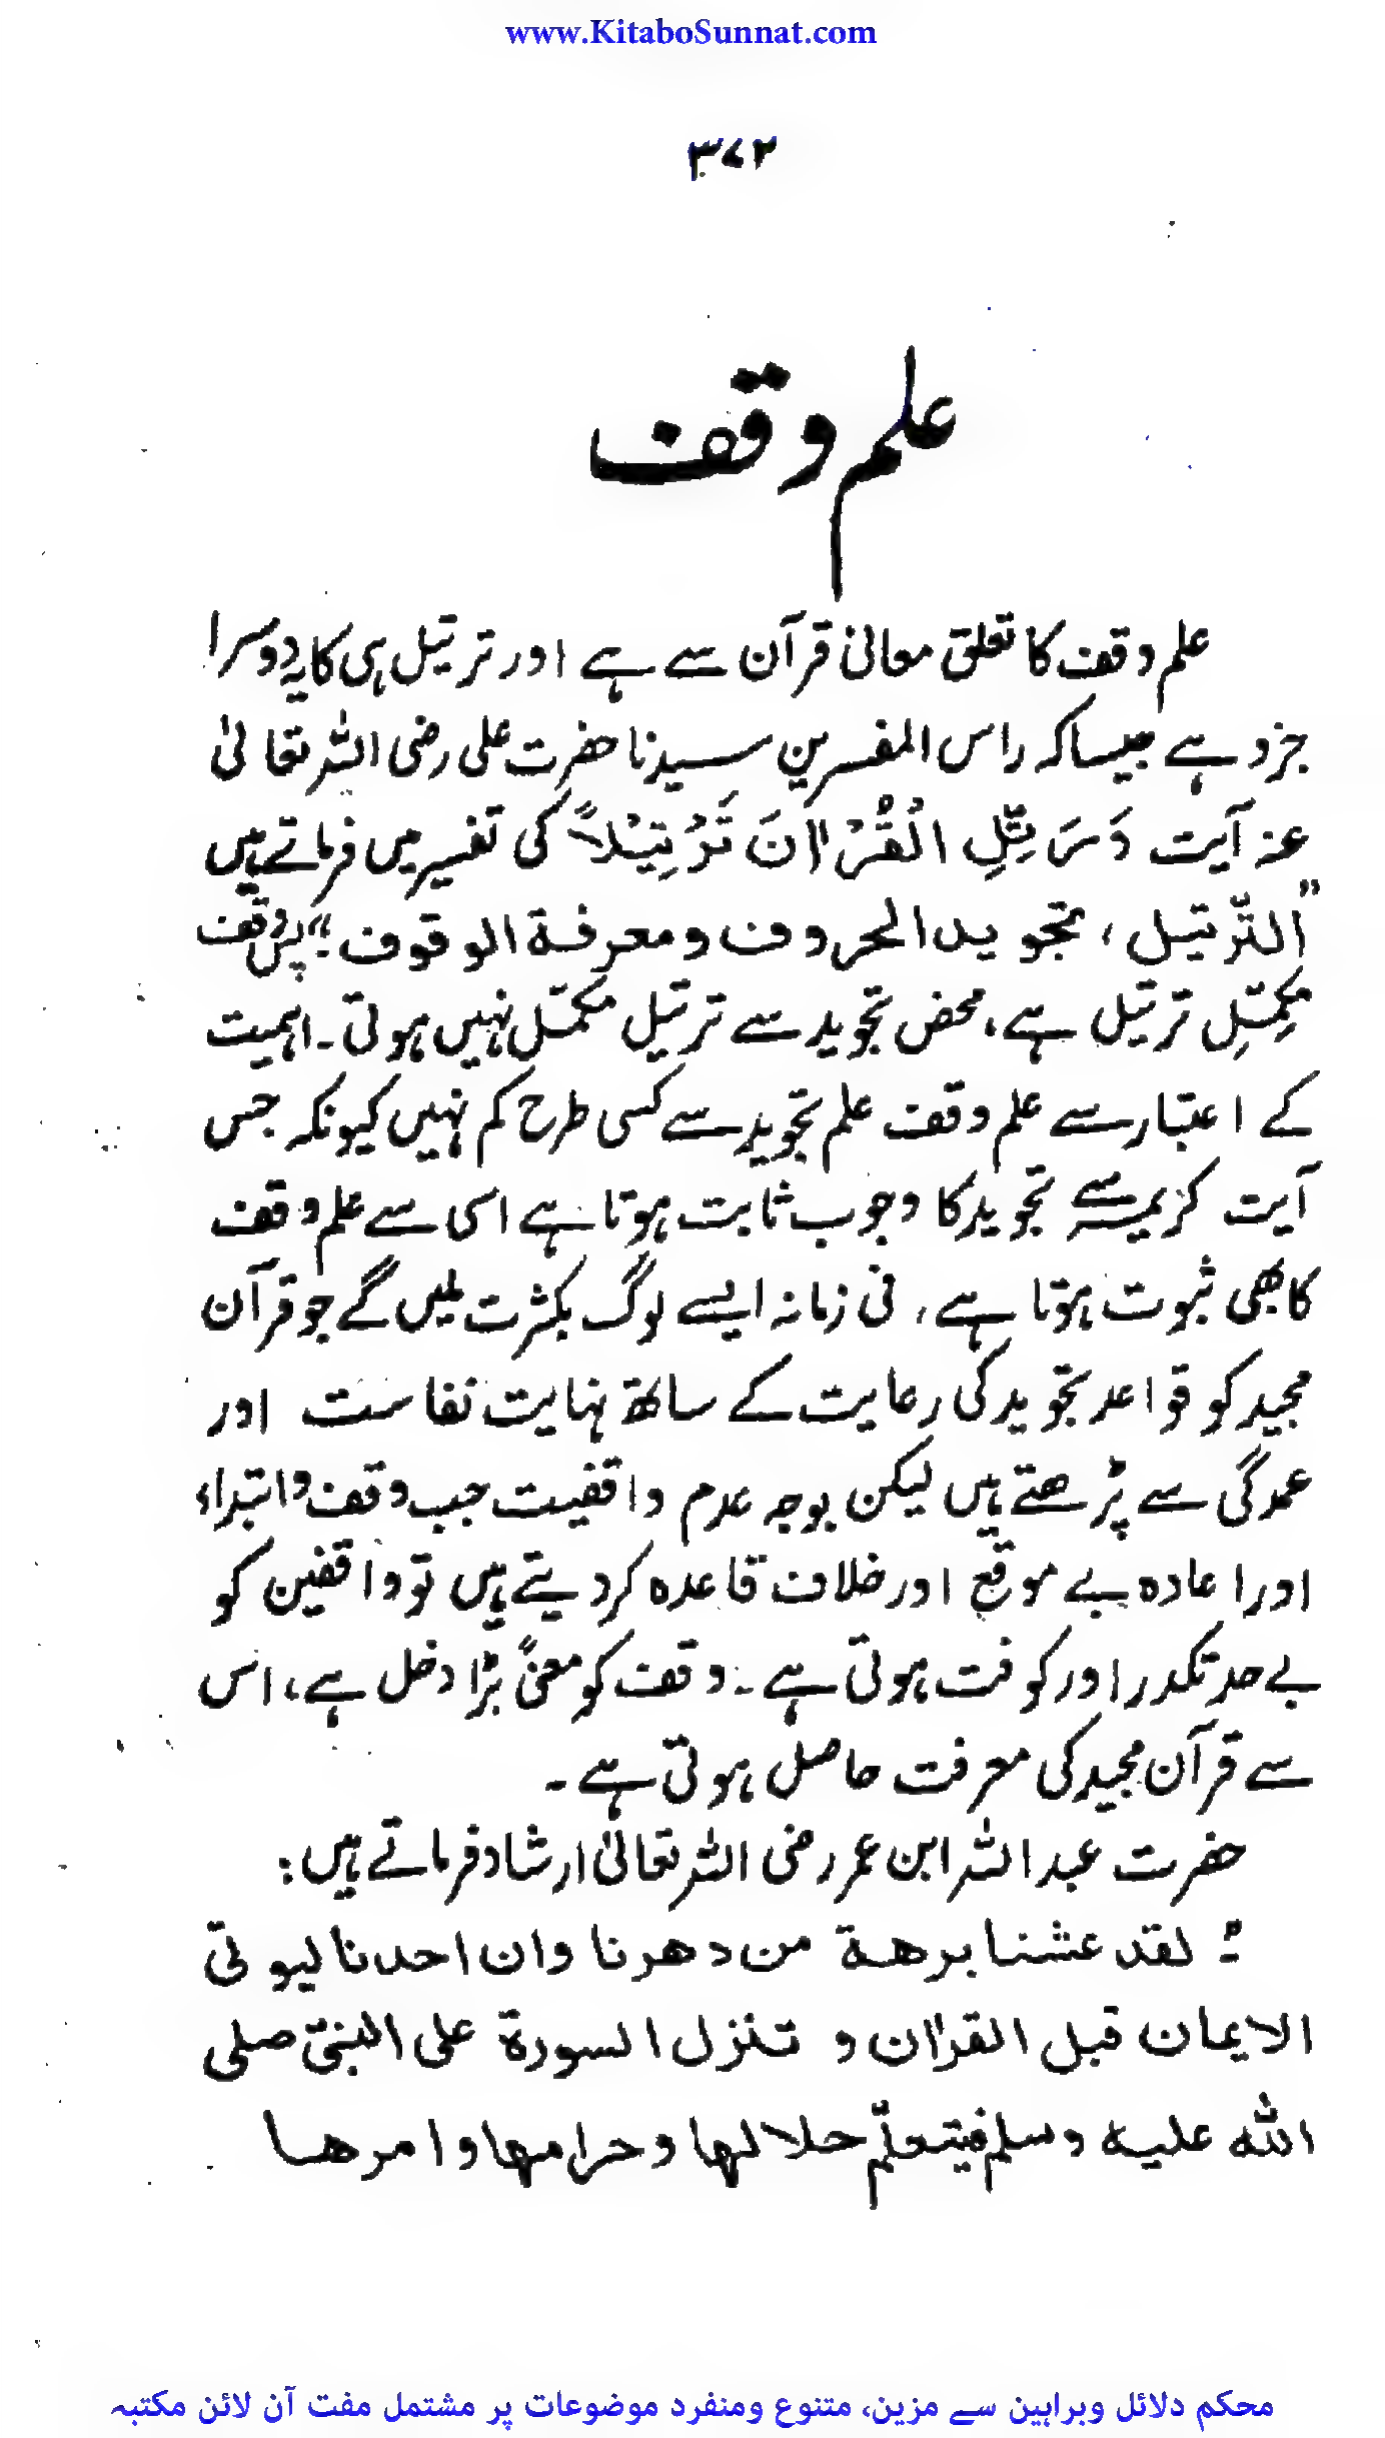 www.KitaboSunnat.com
۳۷۲
علم وقف
علم وقف کا تعلق معانیٔ قرآن سے ہے اور ترتیل ہی کا یہ دوسرا
جزو ہے جیسا کہ راس المفسرین سیدنا حضرت علی رضی اللہ تعالیٰ
عنہ آیت وَرَتِّلِ الْقُرْاٰنَ تَرْتِيْلاً کی تفسیر میں فرماتے ہیں
”الترّتیل، تجوید الحروف ومعرفۃ الوقوف“ پس وقف
مکمِّلِ ترتیل ہے، محض تجوید سے ترتیل مکمّل نہیں ہوتی۔ اہمیت
کے اعتبار سے علم وقف علم تجوید سے کسی طرح کم نہیں کیونکہ جس
آیت کریمہ سے تجوید کا وجوب ثابت ہوتا ہے اسی سے علم وقف
کا بھی ثبوت ہوتا ہے، فی زمانہ ایسے لوگ بکثرت ملیں گے جو قرآن
مجید کو قواعد تجوید کی رعایت کے ساتھ نہایت نفاست اور
عمدگی سے پڑھتے ہیں لیکن بوجہ عدم واقفیت جب وقف وابتداء
اور اعادہ بے موقع اور خلاف قاعدہ کردیتے ہیں تو واقفین کو
بے حد تکدر اور کوفت ہوتی ہے۔ وقف کو معنیً بڑا دخل ہے، اس
سے قرآن مجید کی معرفت حاصل ہوتی ہے۔
حضرت عبد اللہ ابن عمر رضی اللہ تعالیٰ ارشاد فرماتے ہیں:
لقد عشنا برهة من دهرنا وان احدنا ليوتى
الايمان قبل القرٰان و تنزل السورة على النبىّ صلى
الله عليه وسلم فيتعلّم حلالها وحرامها وامرها
محکم دلائل وبراہین سے مزین، متنوع ومنفرد موضوعات پر مشتمل مفت آن لائن مکتبہ